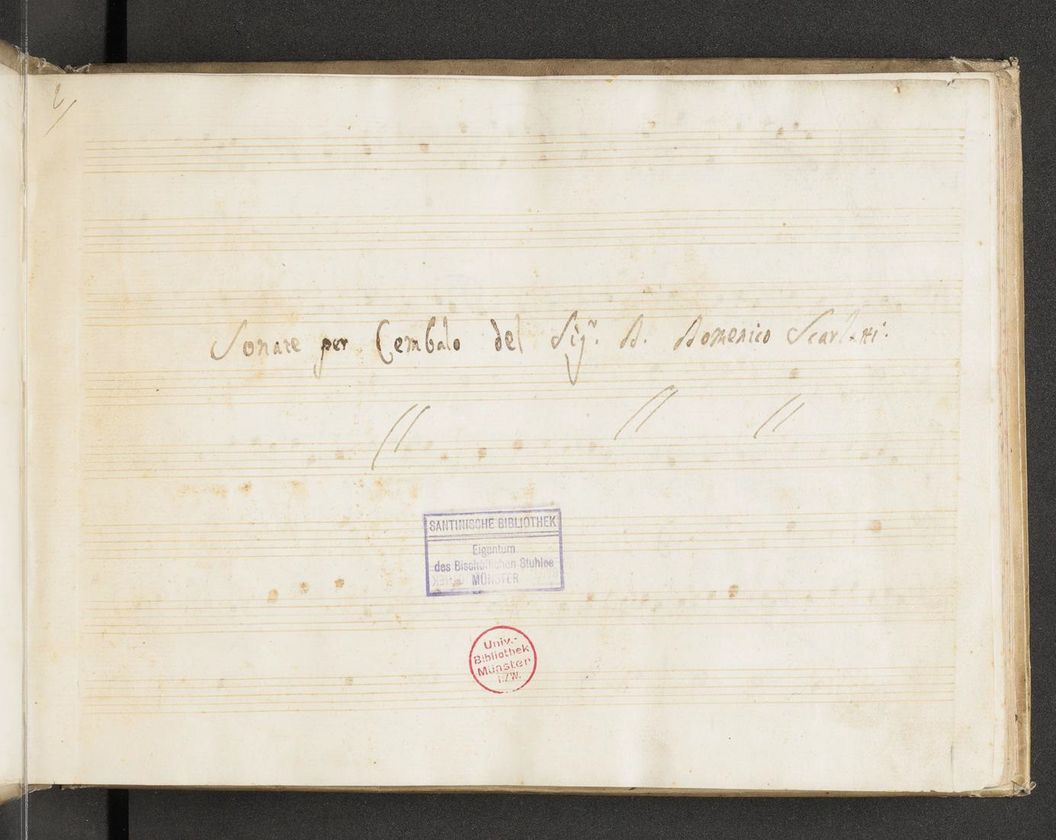 Sonate per Cembalo del Sig.r D. Domenico Scarlatti.
SANTINISCHE BIBLIOTHEK
Eigentum
des Bischöflichen Stuhles
MÜNSTER
Univ.-
Bibliothek
Münster
i./W.